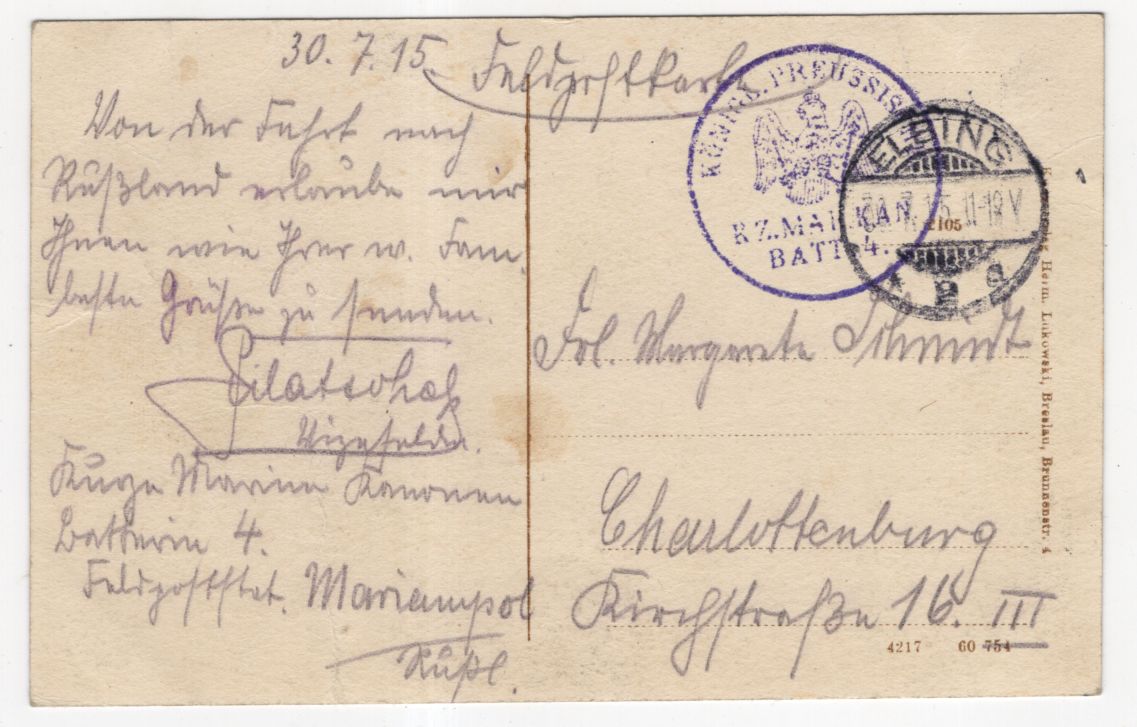 30. 7. 15.
Feldpostkarte
Von der Fahrt nach
Rußland erlaube mir
Ihnen wie Ihrer w. Fam.
beste Grüße zu senden.
Vizefeldw.
Kurze Marine Kanonen
Batterie 4.
Feldpoststat. Mariampol
Rußl.
KÖNIGL. PREUSSIS
KZ. MAR. KAN.
BATT. 4.
ELBING
30.7.15.11-12V
* 2 a
2105
Frl. Margarete Schmidt
Charlottenburg
Kirchstraße 16. III
4217 60 754
Herm. Lukowski, Breslau, Brunnenstr. 4